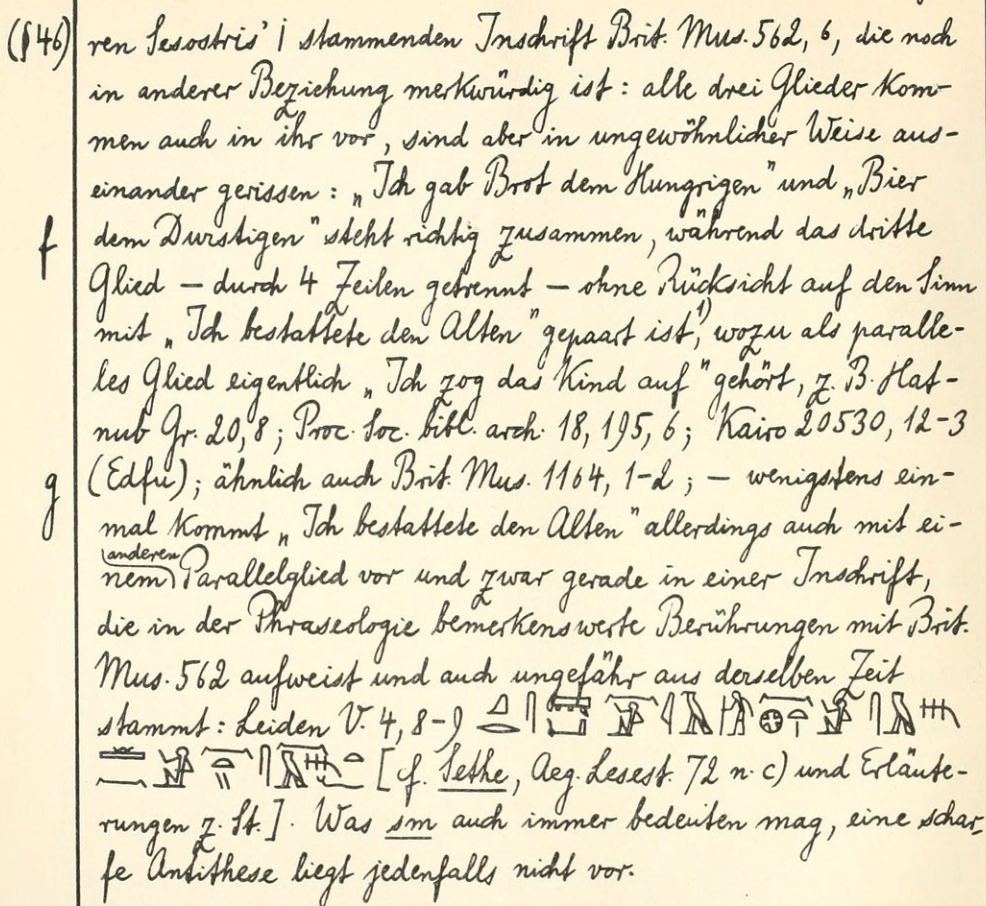 (§46) ren Sesostris' I stammenden Inschrift Brit. Mus. 562, 6, die noch
in anderer Beziehung merkwürdig ist: alle drei Glieder kom-
men auch in ihr vor, sind aber in ungewöhnlicher Weise aus-
einander gerissen: „Ich gab Brot dem Hungrigen" und „Bier
f dem Durstigen" steht richtig zusammen, während das dritte
Glied – durch 4 Zeilen getrennt – ohne Rücksicht auf den Sinn
mit „Ich bestattete den Alten" gepaart ist,¹⁾ wozu als paralle-
les Glied eigentlich „Ich zog das Kind auf" gehört, z. B. Hat-
nub Gr. 20, 8; Proc. Soc. bibl. arch. 18, 195, 6; Kairo 20530, 12-3
g (Edfu); ähnlich auch Brit. Mus. 1164, 1-2; – wenigstens ein-
mal kommt „Ich bestattete den Alten" allerdings auch mit ei-
nem anderen Parallelglied vor und zwar gerade in einer Inschrift,
die in der Phraseologie bemerkenswerte Berührungen mit Brit.
Mus. 562 aufweist und auch ungefähr aus derselben Zeit
stammt: Leiden V. 4, 8-9
[cf. Sethe, Aeg. Lesest. 72 n. c) und Erläute-
rungen z. St.]. Was sm auch immer bedeuten mag, eine schar-
fe Antithese liegt jedenfalls nicht vor.